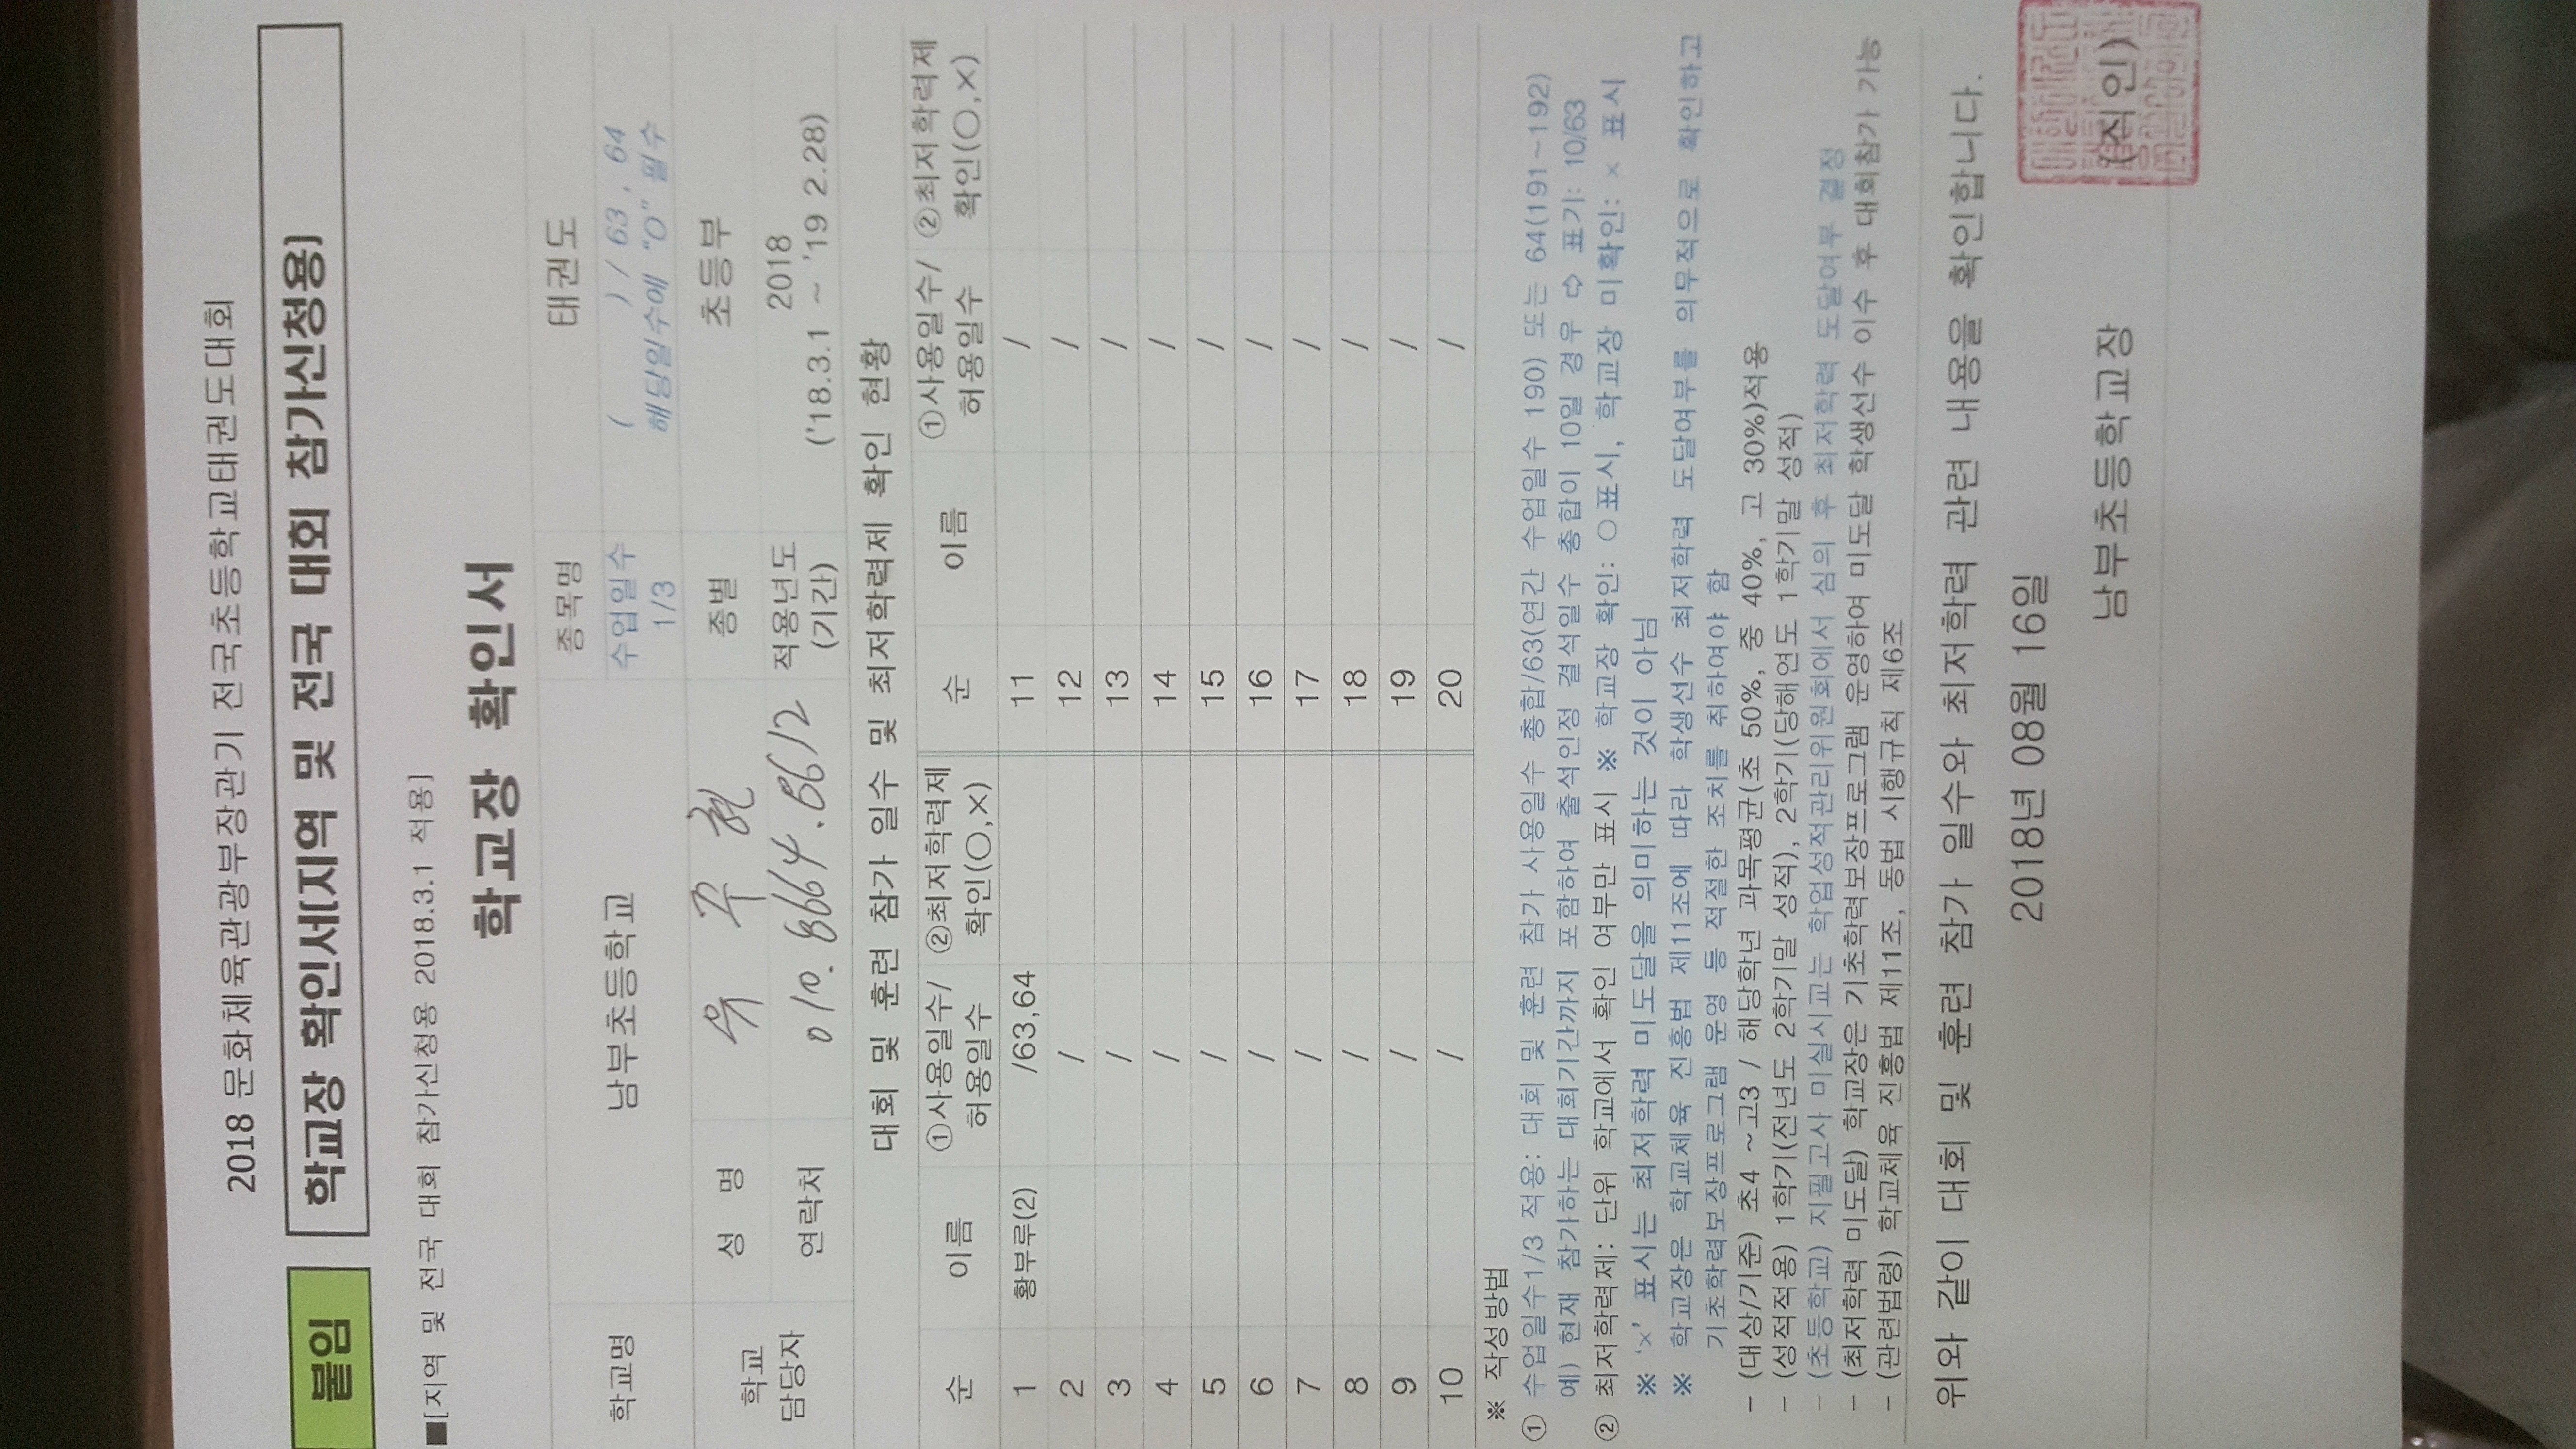 2018 문화체육관광부장관기 전국초등학교태권도대회
붙임 학교장 확인서(지역 및 전국 대회 참가신청용)
■[지역 및 전국 대회 참가신청용 2018.3.1 적용]
학교장 확인서
학교명 남부초등학교 종목명 태권도
수업일수 1/3 ( ) / 63, 64
해당일수에 "O" 필수
학교 담당자 성 명 유 주 현 종별 초등부
연락처 010. 8664. 8612 적용년도 (기간) 2018
('18.3.1 ~ '19 2.28)
대회 및 훈련 참가 일수 및 최저학력제 확인 현황
순 이름 ①사용일수/허용일수 ②최저학력제 확인(○,×) 순 이름 ①사용일수/허용일수 ②최저학력제 확인(○,×)
1 황부류(2) /63,64 11 /
2 / 12 /
3 / 13 /
4 / 14 /
5 / 15 /
6 / 16 /
7 / 17 /
8 / 18 /
9 / 19 /
10 / 20 /
※ 작성방법
① 수업일수1/3 적용: 대회 및 훈련 참가 사용일수 총합/63(연간 수업일수 190) 또는 64(191~192)
예) 현재 참가하는 대회기간까지 포함하여 출석인정 결석일수 총합이 10일 경우 ⇨ 표기: 10/63
② 최저학력제: 단위 학교에서 확인 여부만 표시 ※ 학교장 확인: ○ 표시, 학교장 미확인: × 표시
※ '×' 표시는 최저학력 미도달을 의미하는 것이 아님
※ 학교장은 학교체육 진흥법 제11조에 따라 학생선수 최저학력 도달여부를 의무적으로 확인하고
기초학력보장프로그램 운영 등 적절한 조치를 취하여야 함
- (대상/기준) 초4 ~고3 / 해당학년 과목평균(초 50%, 중 40%, 고 30%)적용
- (성적적용) 1학기(전년도 2학기말 성적), 2학기(당해연도 1학기말 성적)
- (초등학교) 지필고사 미실시교는 학업성적관리위원회에서 심의 후 최저학력 도달여부 결정
- (최저학력 미도달) 학교장은 기초학력보장프로그램 운영하여 미도달 학생선수 이수 후 대회참가 가능
- (관련법령) 학교체육 진흥법 제11조, 동법 시행규칙 제6조
위와 같이 대회 및 훈련 참가 일수와 최저학력 관련 내용을 확인합니다.
2018년 08월 16일
남부초등학교장 (직인)